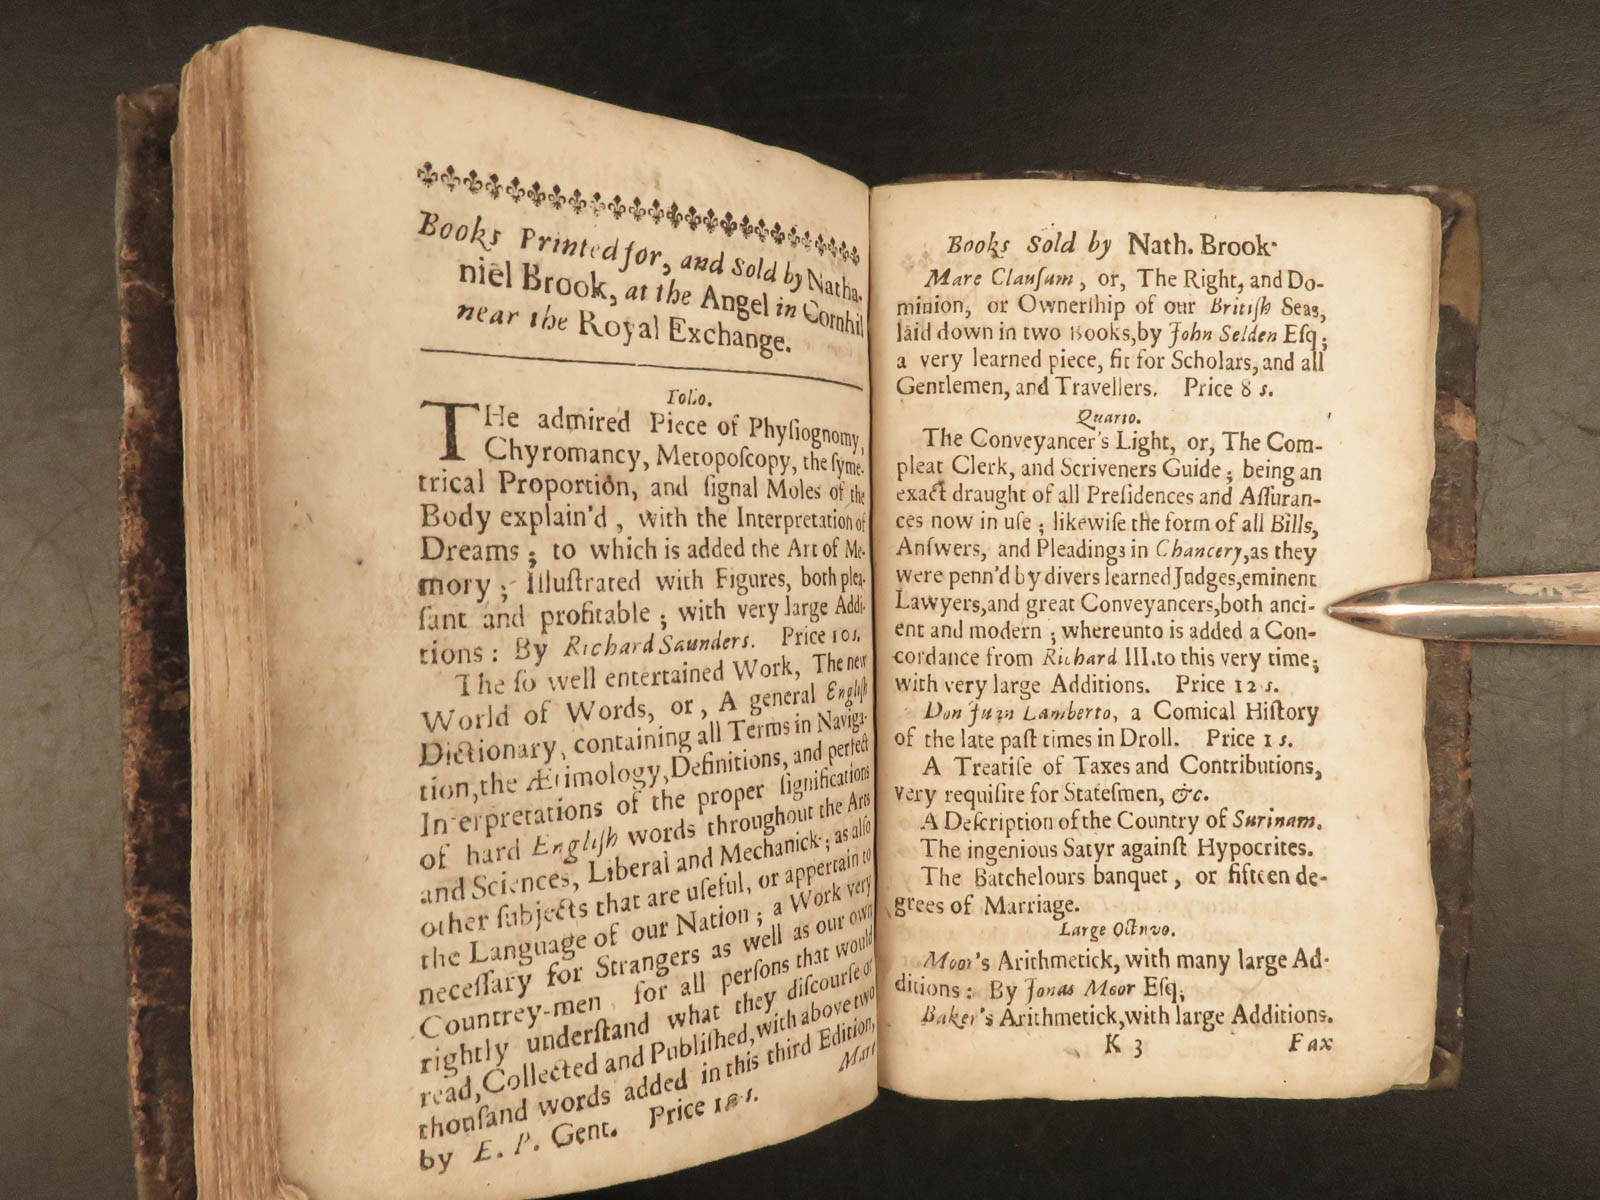 Books Printed for, and Sold by Natha-
niel Brook, at the Angel in Cornhil
near the Royal Exchange.
Folio.
THe admired Piece of Phyſiognomy,
Chyromancy, Metopoſcopy, the ſyme-
trical Proportion, and ſignal Moles of the
Body explain'd, with the Interpretation of
Dreams; to which is added the Art of Me-
mory; Illuſtrated with Figures, both plea-
ſant and profitable; with very large Addi-
tions: By Richard Saunders. Price 10s.
The ſo well entertained Work, The new
World of Words, or, A general Engliſh
Dictionary, containing all Terms in Naviga-
tion, the Ætimology, Definitions, and perfect
Interpretations of the proper ſignifications
of hard Engliſh words throughout the Arts
and Sciences, Liberal and Mechanick; as alſo
other ſubjects that are uſeful, or appertain to
the Language of our Nation; a Work very
neceſſary for Strangers as well as our own
Countrey-men for all perſons that would
rightly underſtand what they diſcourſe or
read, Collected and Publiſhed, with above two
thouſand words added in this third Edition,
by E. P. Gent. Price s.
Mare
Books Sold by Nath. Brook
Mare Clauſum, or, The Right, and Do-
minion, or Ownerſhip of our Britiſh Seas,
laid down in two Books, by John Selden Eſq;
a very learned piece, fit for Scholars, and all
Gentlemen, and Travellers. Price 8 s.
Quarto.
The Conveyancer's Light, or, The Com-
pleat Clerk, and Scriveners Guide; being an
exact draught of all Preſidences and Aſſuran-
ces now in uſe; likewiſe the form of all Bills,
Anſwers, and Pleadings in Chancery, as they
were penn'd by divers learned Judges, eminent
Lawyers, and great Conveyancers, both anci-
ent and modern; whereunto is added a Con-
cordance from Richard III. to this very time;
with very large Additions. Price 12 s.
Don Juan Lamberto, a Comical Hiſtory
of the late paſt times in Droll. Price 1 s.
A Treatiſe of Taxes and Contributions,
very requiſite for Stateſmen, &c.
A Deſcription of the Country of Surinam.
The ingenious Satyr againſt Hypocrites.
The Batchelours banquet, or fifteen de-
grees of Marriage.
Large Octavo.
Moor's Arithmetick, with many large Ad-
ditions: By Jonas Moor Eſq;
Baker's Arithmetick, with large Additions.
K 3 Fax